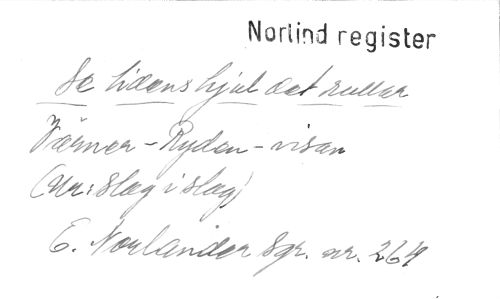 Norlind register
Se tidens hjul det rullar
Värner-Ryden-visan
(Ur: Slag i slag)
E. Norlander Sgr. nr. 264